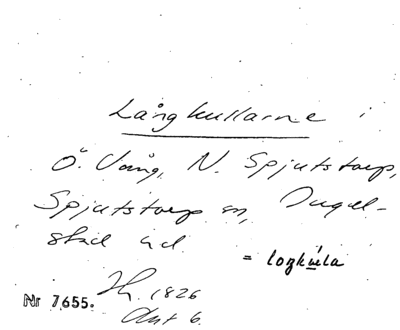 Långkullarne i
Ö. Vång, N. Spjutstorp,
Spjutstorp sn, Ingel-
stad hd.
= loŋkula
Nr 7655. 1826
Akt 6.